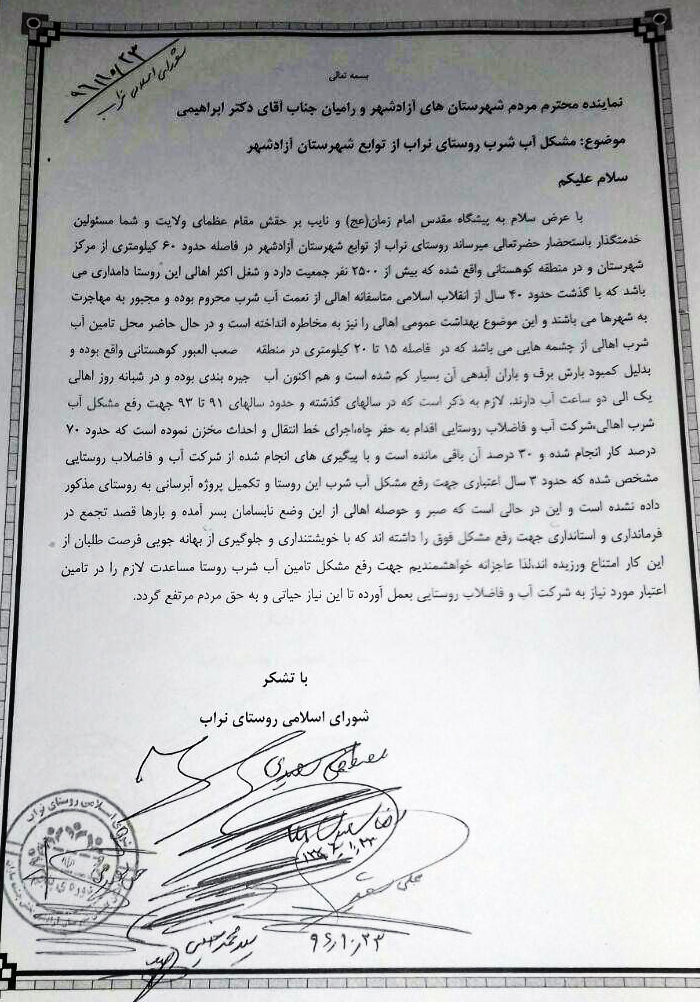 ۹۶/۱۰/۲۳
شورای اسلامی نراب
بسمه تعالی
نماینده محترم مردم شهرستان های آزادشهر و رامیان جناب آقای دکتر ابراهیمی
موضوع: مشکل آب شرب روستای نراب از توابع شهرستان آزادشهر
سلام علیکم
با عرض سلام به پیشگاه مقدس امام زمان(عج) و نایب بر حقش مقام عظمای ولایت و شما مسئولین
خدمتگذار باستحضار حضرتعالی میرساند روستای نراب از توابع شهرستان آزادشهر در فاصله حدود ۶۰ کیلومتری از مرکز
شهرستان و در منطقه کوهستانی واقع شده که بیش از ۲۵۰۰ نفر جمعیت دارد و شغل اکثر اهالی این روستا دامداری می
باشد که با گذشت حدود ۴۰ سال از انقلاب اسلامی متاسفانه اهالی از نعمت آب شرب محروم بوده و مجبور به مهاجرت
به شهرها می باشند و این موضوع بهداشت عمومی اهالی را نیز به مخاطره انداخته است و در حال حاضر محل تامین آب
شرب اهالی از چشمه هایی می باشد که در فاصله ۱۵ تا ۲۰ کیلومتری در منطقه صعب العبور کوهستانی واقع بوده و
بدلیل کمبود بارش برف و باران آبدهی آن بسیار کم شده است و هم اکنون آب جیره بندی بوده و در شبانه روز اهالی
یک الی دو ساعت آب دارند. لازم به ذکر است که در سالهای گذشته و حدود سالهای ۹۱ تا ۹۳ جهت رفع مشکل آب
شرب اهالی،شرکت آب و فاضلاب روستایی اقدام به حفر چاه،اجرای خط انتقال و احداث مخزن نموده است که حدود ۷۰
درصد کار انجام شده و ۳۰ درصد آن باقی مانده است و با پیگیری های انجام شده از شرکت آب و فاضلاب روستایی
مشخص شده که حدود ۳ سال اعتباری جهت رفع مشکل آب شرب این روستا و تکمیل پروژه آبرسانی به روستای مذکور
داده نشده است و این در حالی است که صبر و حوصله اهالی از این وضع نابسامان بسر آمده و بارها قصد تجمع در
فرمانداری و استانداری جهت رفع مشکل فوق را داشته اند که با خویشتنداری و جلوگیری از بهانه جویی فرصت طلبان از
این کار امتناع ورزیده اند،لذا عاجزانه خواهشمندیم جهت رفع مشکل تامین آب شرب روستا مساعدت لازم را در تامین
اعتبار مورد نیاز به شرکت آب و فاضلاب روستایی بعمل آورده تا این نیاز حیاتی و به حق مردم مرتفع گردد.
با تشکر
شورای اسلامی روستای نراب
مصطفی سعیدی
شورای اسلامی روستای نراب
۹۶/۱۰/۲۳